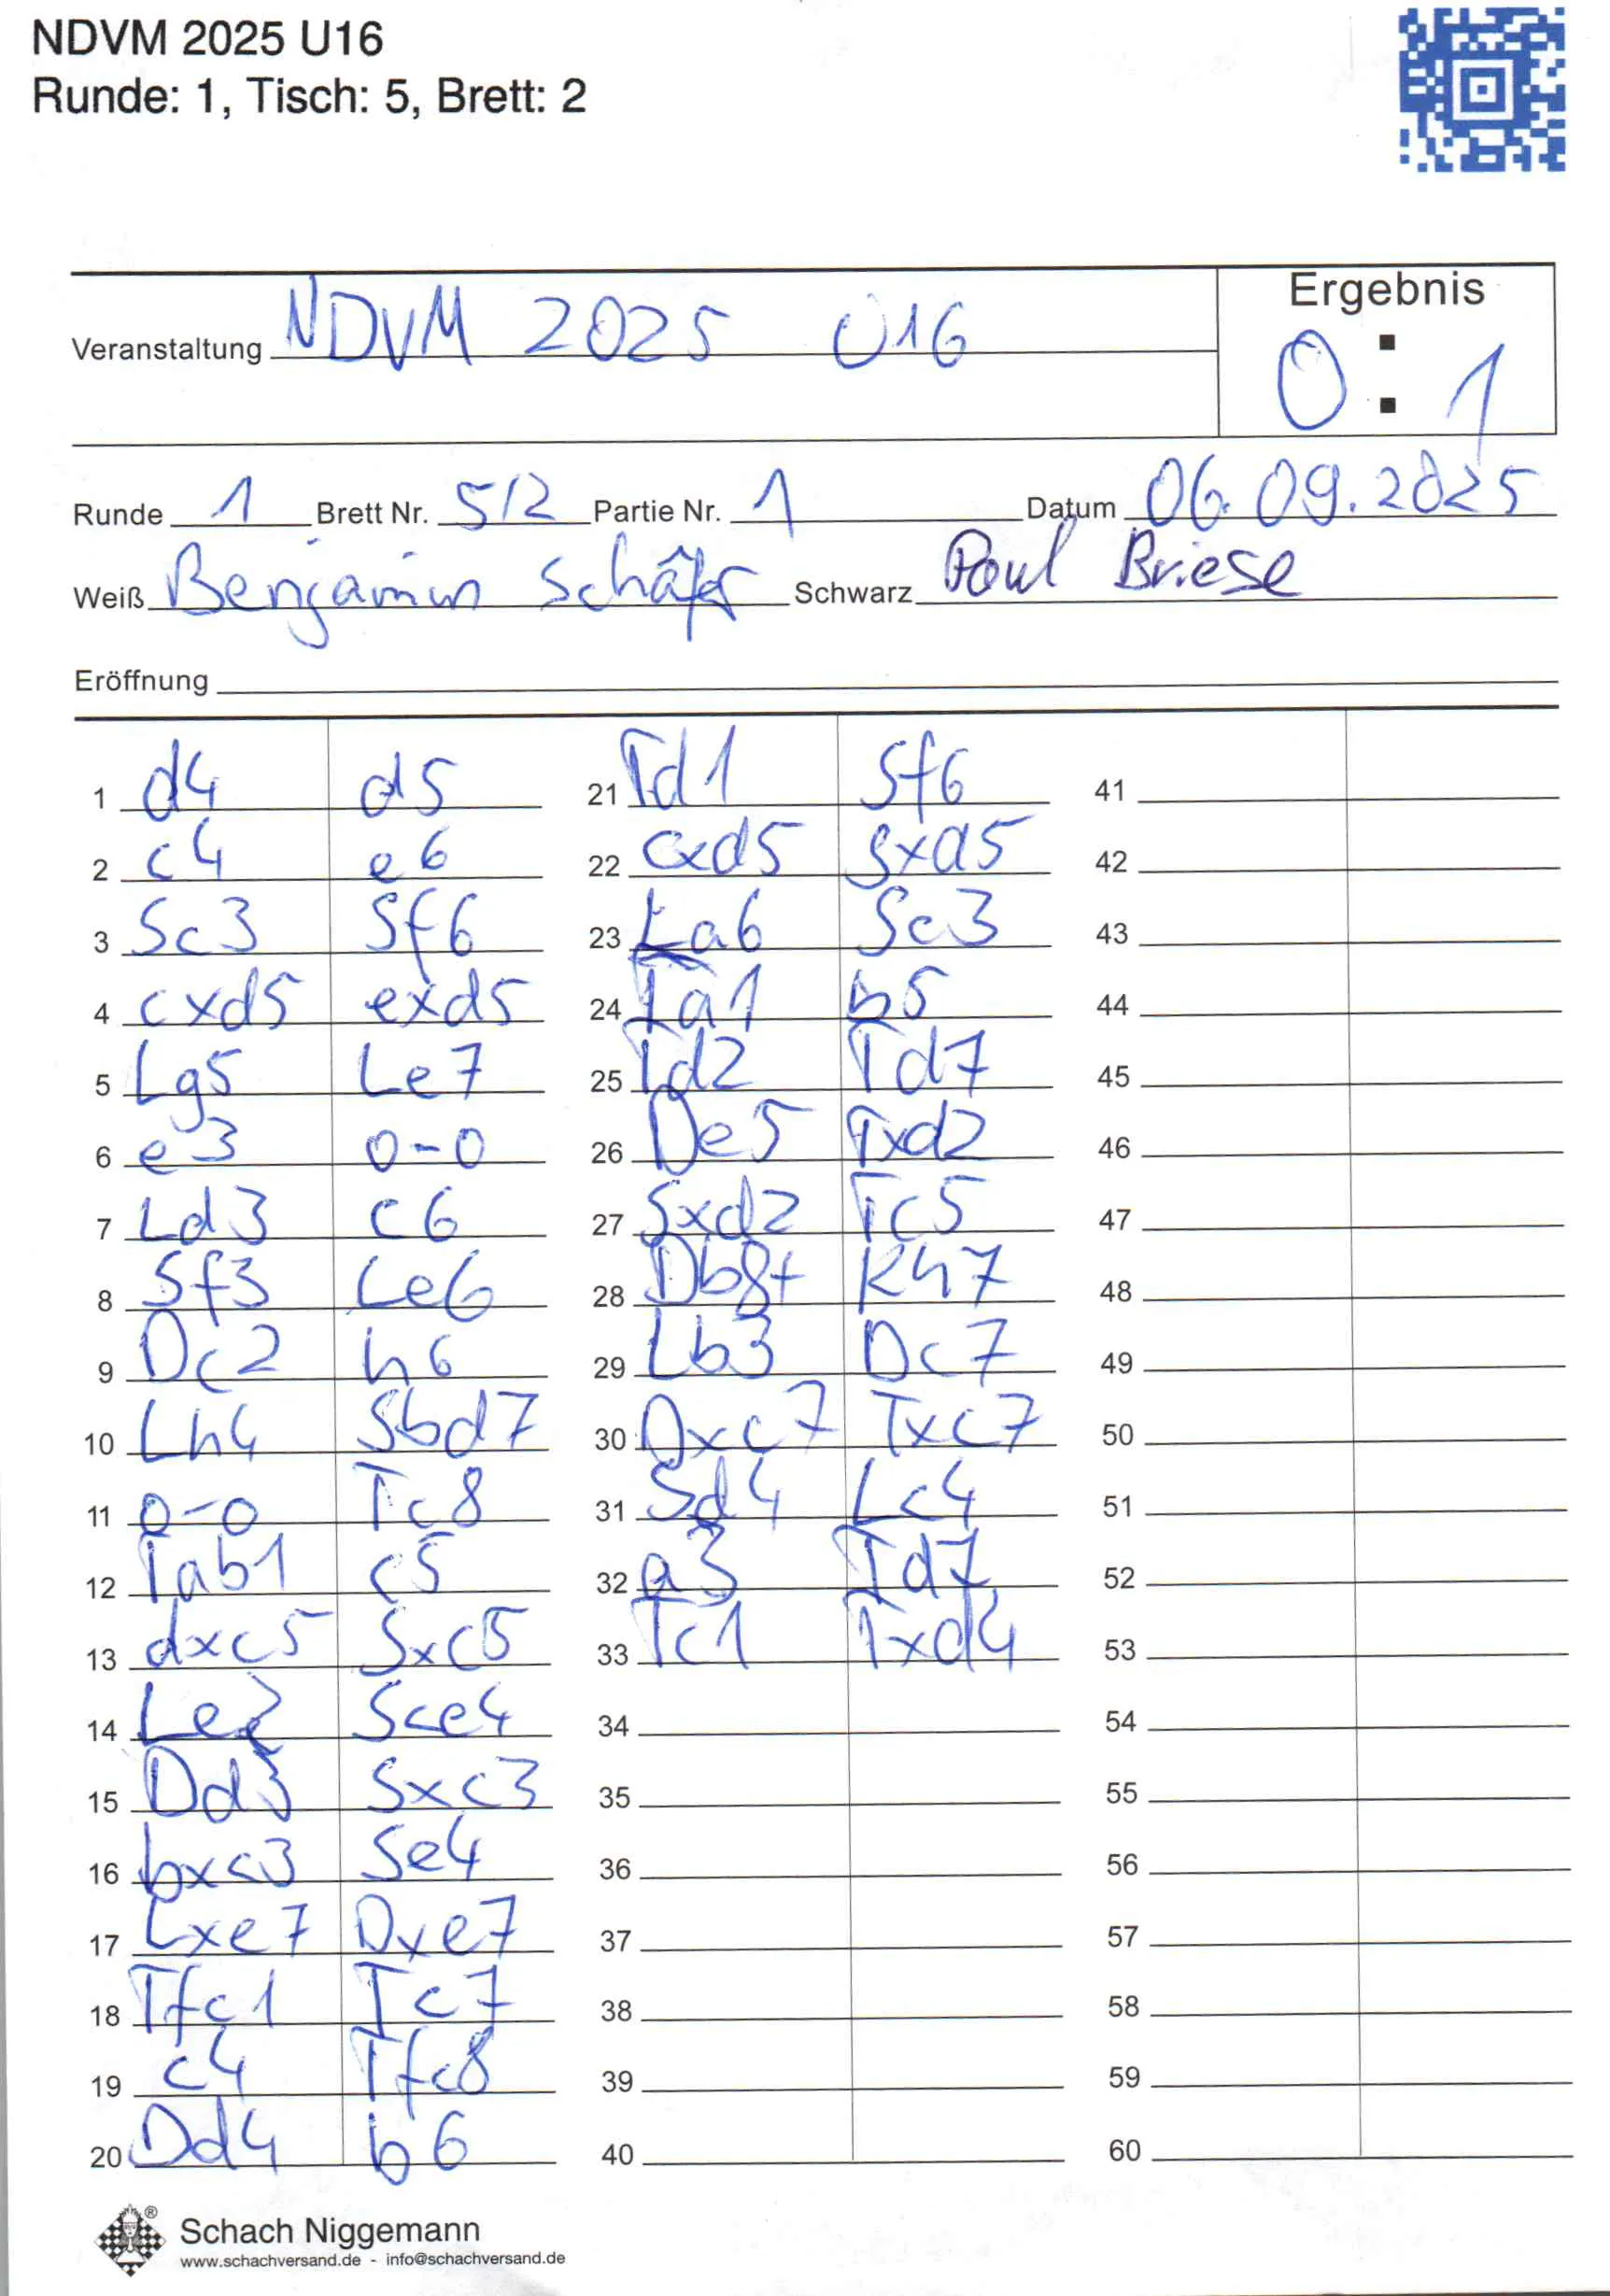 NDVM 2025 U16
Runde: 1, Tisch: 5, Brett: 2
Ergebnis
Veranstaltung NDVM 2025 U16
0 : 1
Runde 1 Brett Nr. 5/2 Partie Nr. 1 Datum 06.09.2025
Weiß Benjamin Schäfer Schwarz Paul Briese
Eröffnung
1 d4 d5 21 Td1 Sf6 41
2 c4 e6 22 cxd5 Sxd5 42
3 Sc3 Sf6 23 La6 Sc3 43
4 cxd5 exd5 24 Ta1 b5 44
5 Lg5 Le7 25 Td2 Td7 45
6 e3 0-0 26 De5 Txd2 46
7 Ld3 c6 27 Sxd2 Tc5 47
8 Sf3 Le6 28 Db8+ Kh7 48
9 Dc2 h6 29 Lb3 Dc7 49
10 Lh4 Sbd7 30 Dxc7 Txc7 50
11 0-0 Tc8 31 Sd4 Lc4 51
12 Tab1 c5 32 a3 Td7 52
13 dxc5 Sxc5 33 Tc1 Txd4 53
14 Le2 Sce4 34 54
15 Dd3 Sxc3 35 55
16 bxc3 Se4 36 56
17 Lxe7 Dxe7 37 57
18 Tfc1 Tc7 38 58
19 c4 Tfc8 39 59
20 Dd4 b6 40 60
®
Schach Niggemann
www.schachversand.de - info@schachversand.de